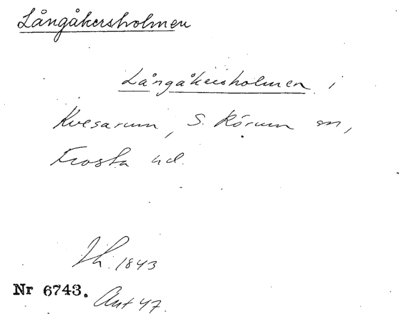 Långåkersholmen
Långåkersholmen i
Kvesarum, S. Rörum sn,
Frosta hd.
Jh. 1843
Nr 6743. Ant 47.